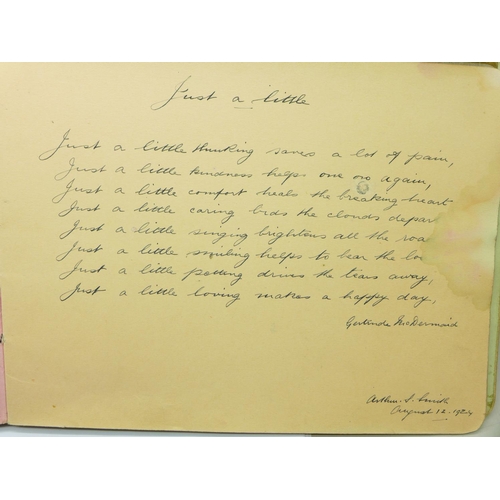 Just a little
Just a little thinking saves a lot of pain,
Just a little kindness helps one on again,
Just a little comfort heals the breaking heart
Just a little caring bids the clouds depart
Just a little singing brightens all the roa
Just a little smiling helps to bear the lo
Just a little petting drives the tears away,
Just a little loving makes a happy day,
Gertrude McDermaid
Arthur. S. Smith
August 12. 1924